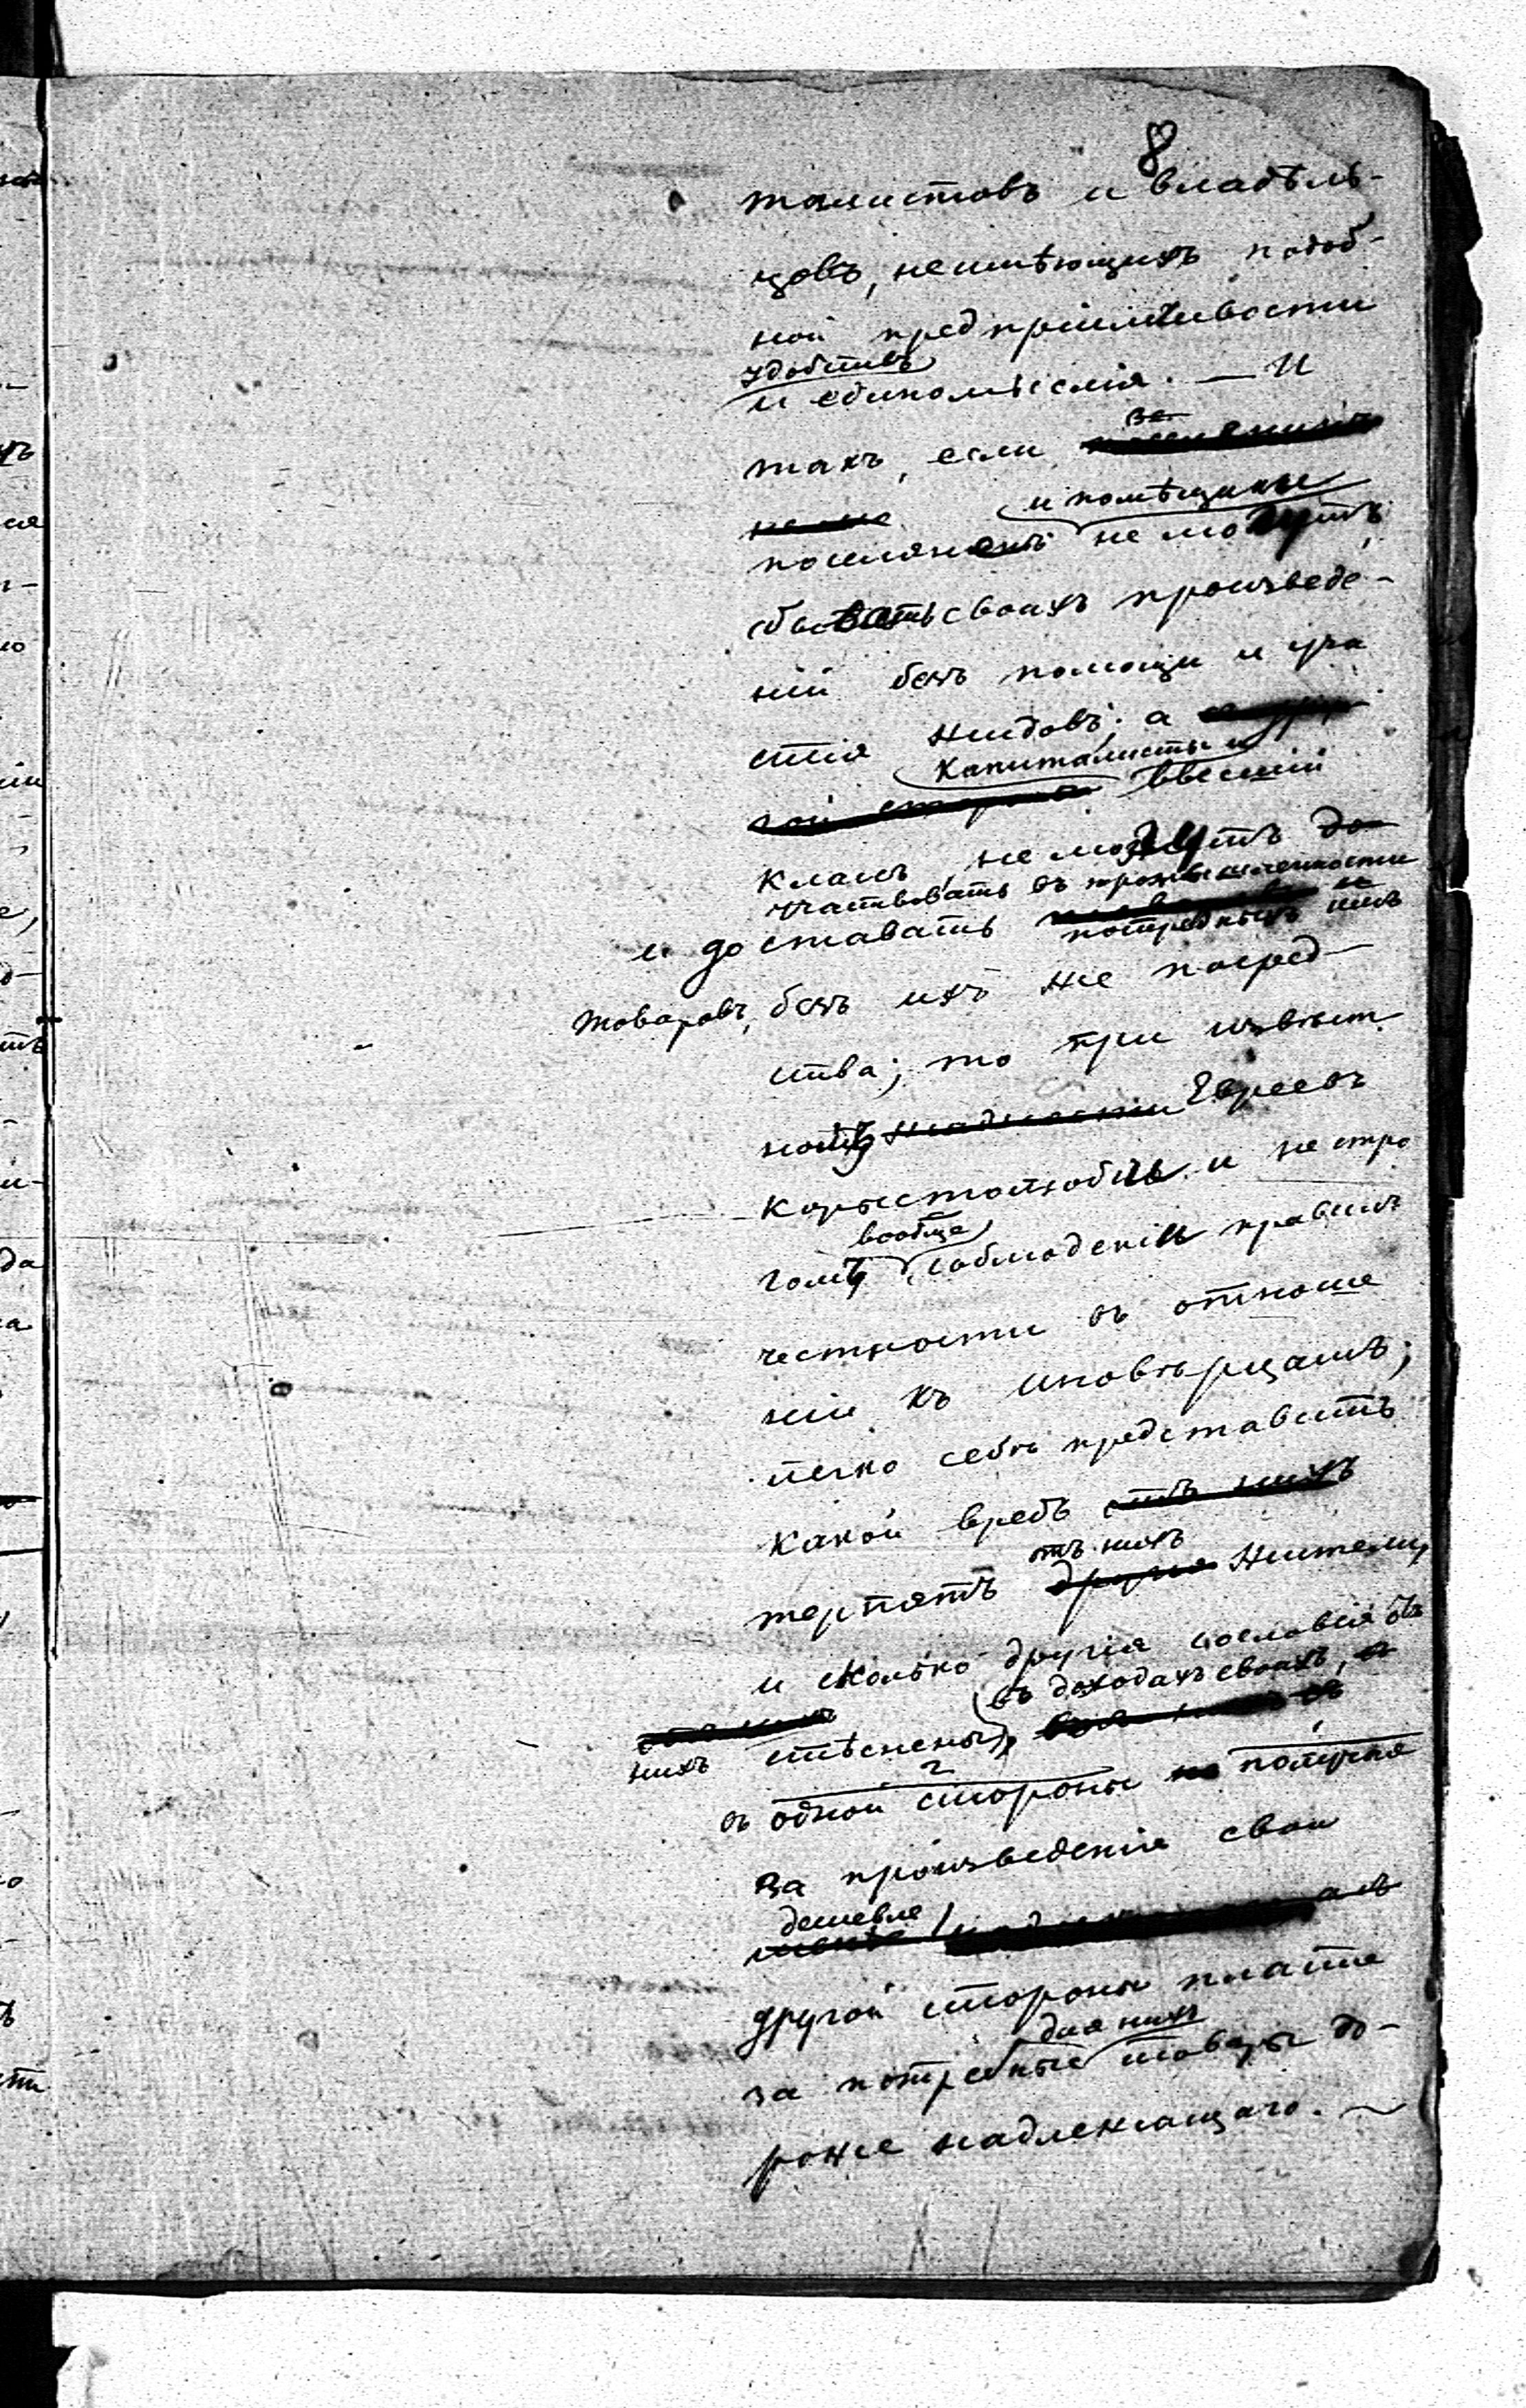 8
талистовъ и владѣль-
цовъ, неимѣющихъ подоб-
ной предпріимчивости
удобствъ
и единомыслія. — И
такъ, если
и помѣщики
поселяне не могутъ
сбывать своихъ произведе-
ній безъ помощи и уча
стія жидовъ; а
капиталисты и
гой стороны высшій
классъ, не могутъ до
участвовать въ промышленности
и доставать потребныхъ имъ
товаровъ, безъ ихъ же посред-
ства; то при извѣст
номъ жадности Евреевъ
корыстолюбіи и не стро
вообще
гомъ соблюденіи правилъ
честности въ отноше
ніи къ иновѣрцамъ;
легко себѣ представить
какой вредъ отъ нихъ
отъ нихъ
терпятъ другіе жители,
и сколько другія сословія отъ
въ доходахъ своихъ, съ
нихъ стѣснены,
съ одной стороны получая
за произведенія свои
дешевле
менѣе съ
другой стороны платя
для нихъ
за потребные товары до-
роже надлежащаго. —